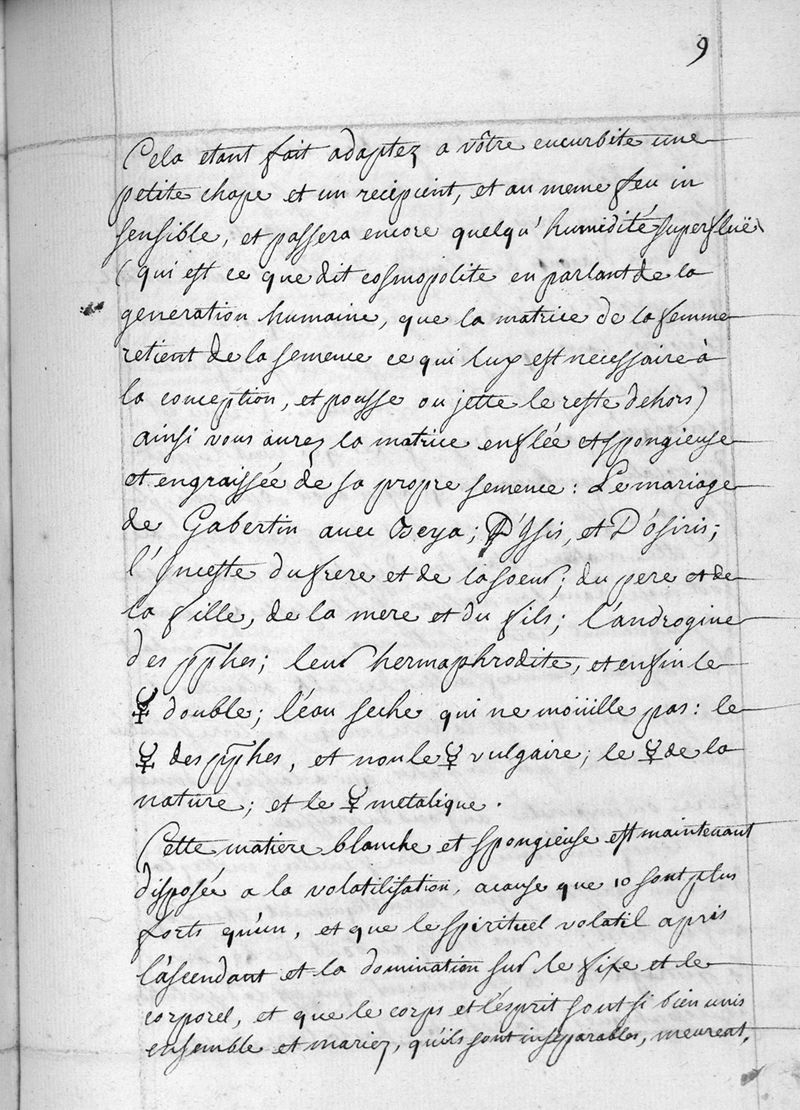 9
Cela etant fait adaptez a vôtre cucurbite une
petite chape et un recipient, et au meme feu in
sensible, et passera encore quelqu' humidité superfluë
(qui est ce que dit cosmopolite en parlant de la
generation humaine, que la matrice de la femme
retient de la semence ce qui luy est necessaire à
la conception, et pousse ou jette le reste dehors)
ainsi vous aurez la matrice enflée et spongieuse
et engraissée de sa propre semence: Le mariage
de Gabertin avec Beya; D'Isis, et D'osiris;
l'Inceste du frere et de la soeur; du pere et de
la fille, de la mere et du fils; l'androgine
des pphes; leur hermaphrodite, et enfin le
☿ double; l'éau seche qui ne moüille pas: le
☿ des pphes, et non le ☿ vulgaire; le ☿ de la
nature; et le ☿ metalique.
Cette matiere blanche et spongieuse est maintenant
disposée a la volatilisation, acause que 10 sont plus
forts qu'un, et que le spirituel volatil apris
l'ascendant et la domination sur le fixe et le
corporel, et que le corps et l'ésprit sont si bien unis
ensemble et mariez, qu'ils sont inseparables, meurent,